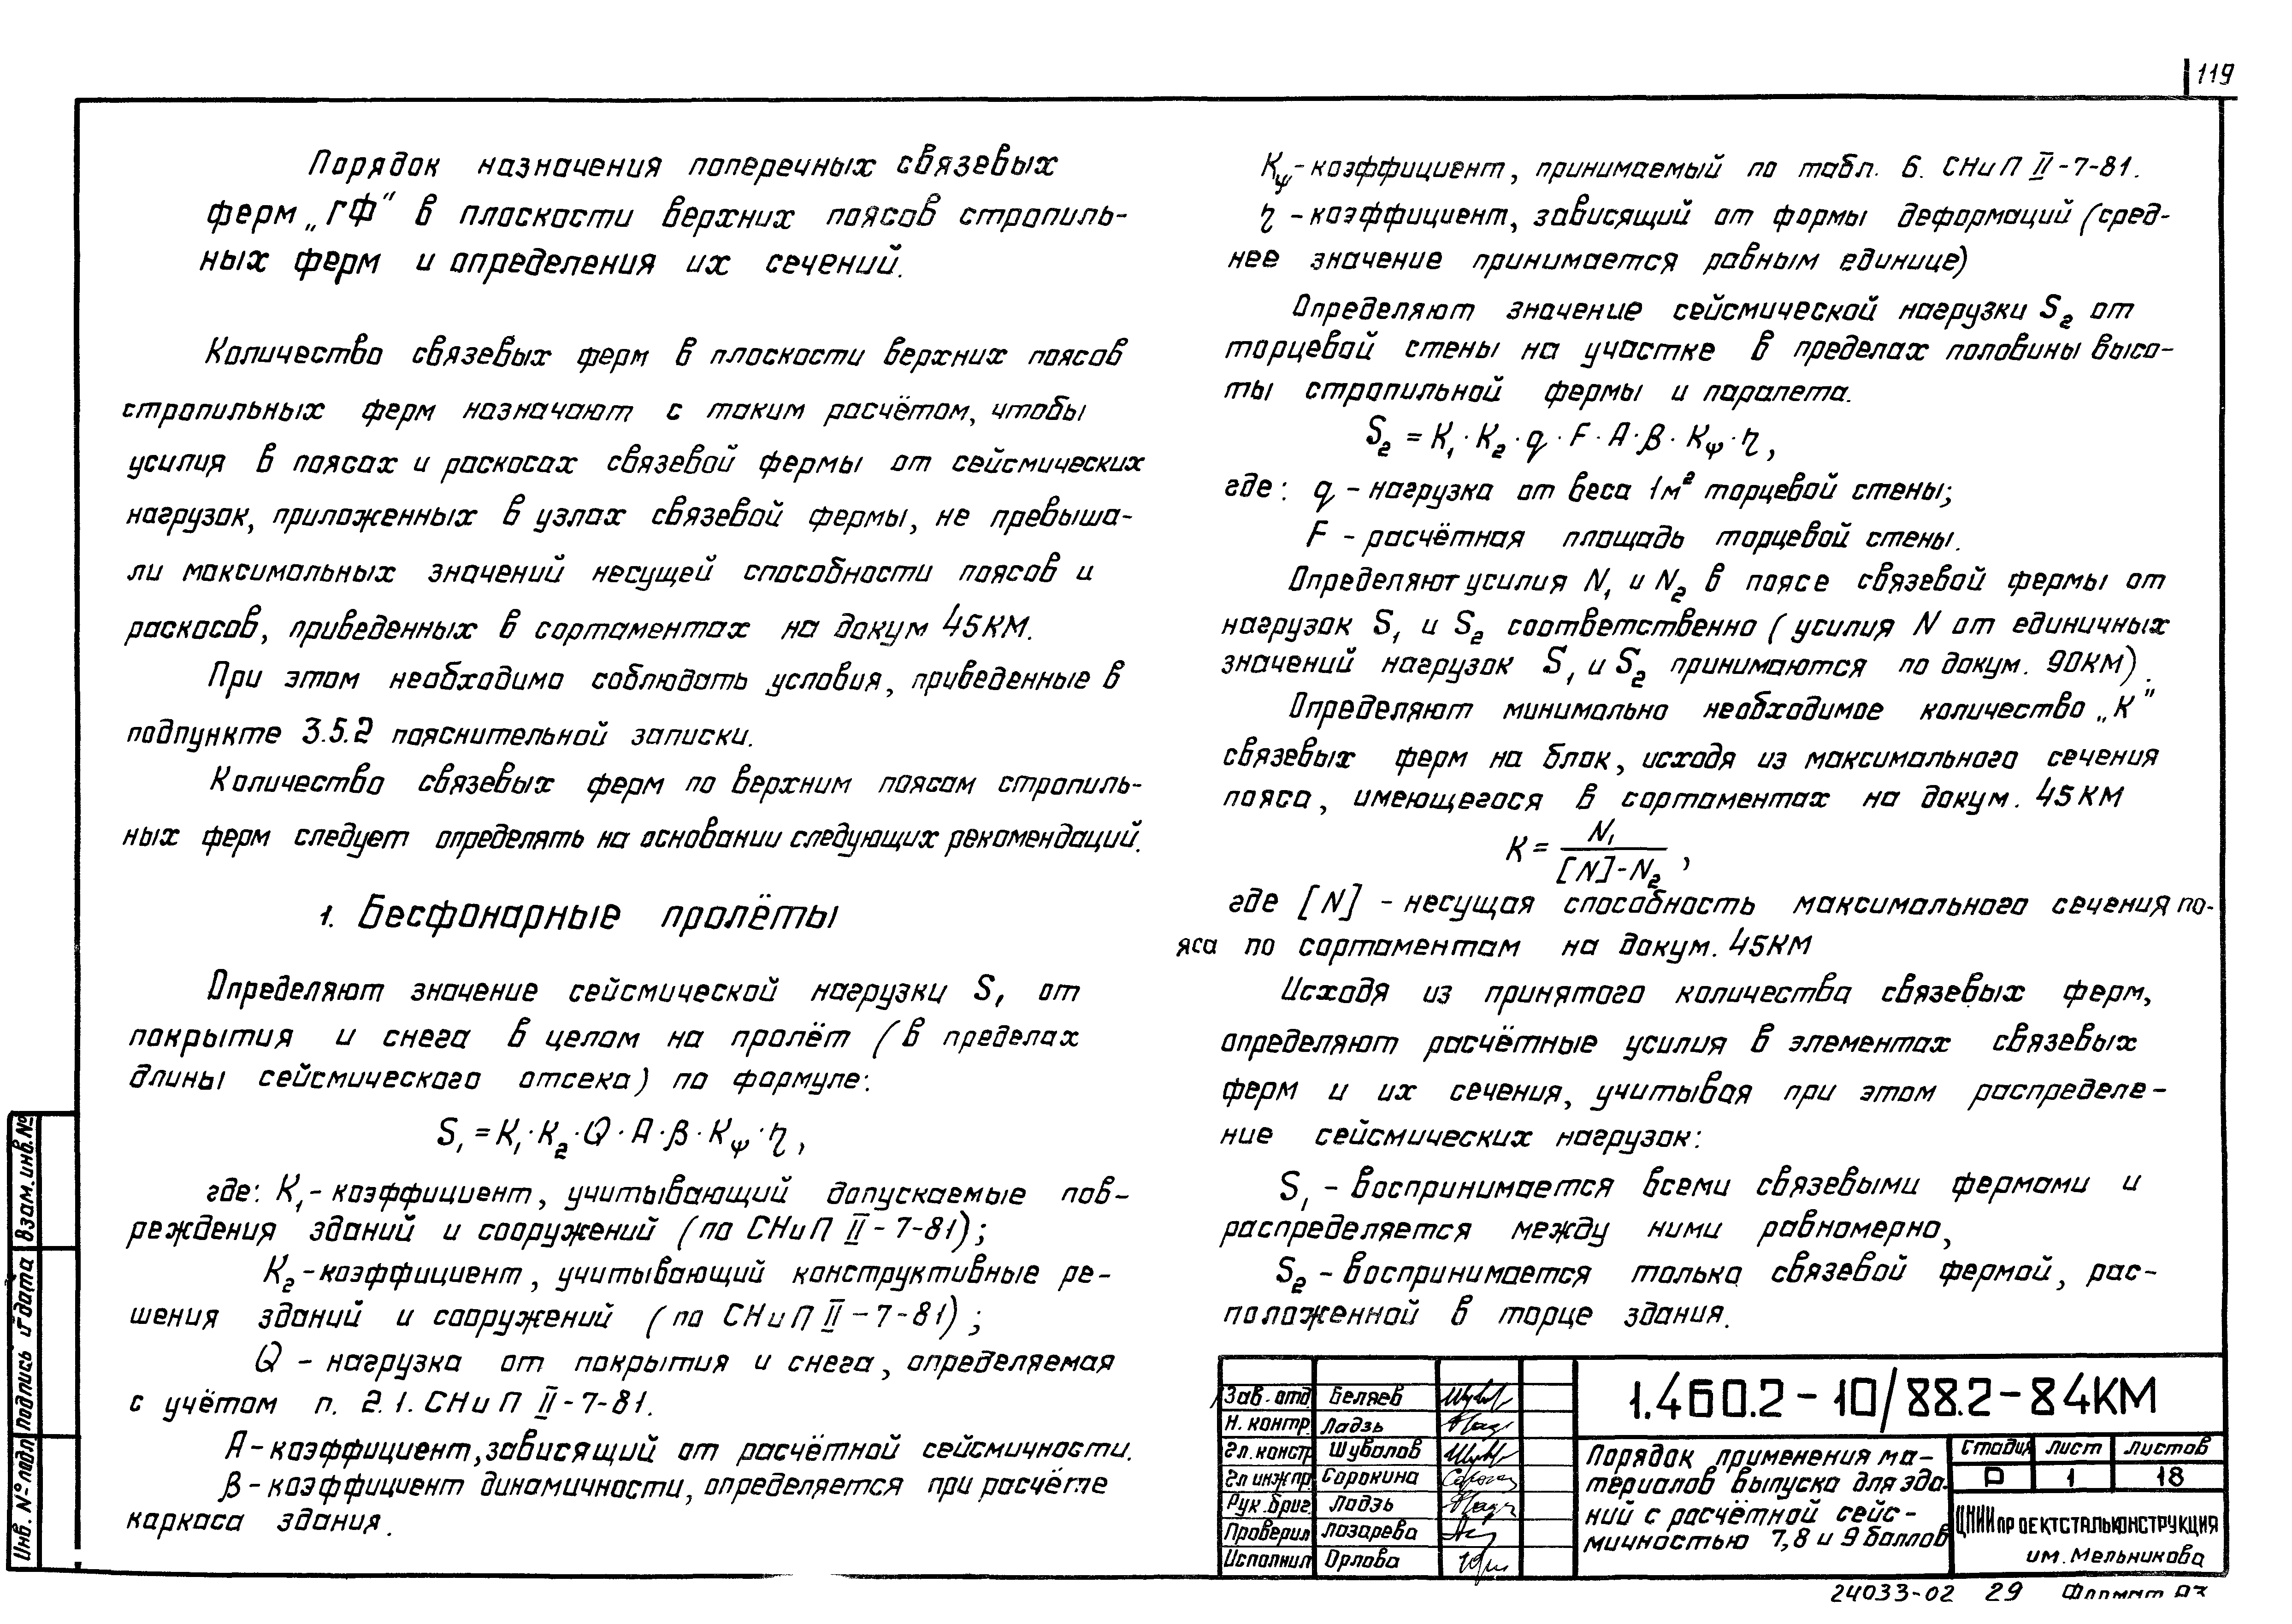 119
Порядок назначения поперечных связевых
ферм „ГФ" в плоскости верхних поясов стропиль-
ных ферм и определения их сечений.
Количество связевых ферм в плоскости верхних поясов
стропильных ферм назначают с таким расчётом, чтобы
усилия в поясах и раскосах связевой фермы от сейсмических
нагрузок, приложенных в узлах связевой фермы, не превыша-
ли максимальных значений несущей способности поясов и
раскосов, приведенных в сортаментах на докум 45КМ.
При этом необходимо соблюдать условия, приведенные в
подпункте 3.5.2 пояснительной записки.
Количество связевых ферм по верхним поясам стропиль-
ных ферм следует определять на основании следующих рекомендаций.
1. Бесфонарные пролёты
Определяют значение сейсмической нагрузки S₁ от
покрытия и снега в целом на пролёт (в пределах
длины сейсмического отсека) по формуле:
S₁ = K₁ · K₂ · Q · A · β · Kψ · η,
где: K₁ - коэффициент, учитывающий допускаемые пов-
реждения зданий и сооружений (по СНиП II - 7-81);
K₂ - коэффициент, учитывающий конструктивные ре-
шения зданий и сооружений (по СНиП II - 7-81);
Q - нагрузка от покрытия и снега, определяемая
с учётом п. 2.1. СНиП II - 7-81.
A - коэффициент, зависящий от расчётной сейсмичности.
β - коэффициент динамичности, определяется при расчёте
каркаса здания.
Kψ - коэффициент, принимаемый по табл. 6. СНиП II - 7-81.
η - коэффициент, зависящий от формы деформаций (сред-
нее значение принимается равным единице)
Определяют значение сейсмической нагрузки S₂ от
торцевой стены на участке в пределах половины высо-
ты стропильной фермы и парапета.
S₂ = K₁ · K₂ · q · F · A · β · Kψ · η,
где: q - нагрузка от веса 1м² торцевой стены;
F - расчётная площадь торцевой стены.
Определяют усилия N₁ и N₂ в поясе связевой фермы от
нагрузок S₁ и S₂ соответственно (усилия N от единичных
значений нагрузок S₁ и S₂ принимаются по докум. 90КМ).
Определяют минимально необходимое количество „К"
связевых ферм на блок, исходя из максимального сечения
пояса, имеющегося в сортаментах на докум. 45КМ
K = N₁ / [N] - N₂ ,
где [N] - несущая способность максимального сечения по-
яса по сортаментам на докум. 45КМ
Исходя из принятого количества связевых ферм,
определяют расчётные усилия в элементах связевых
ферм и их сечения, учитывая при этом распределе-
ние сейсмических нагрузок:
S₁ - воспринимается всеми связевыми фермами и
распределяется между ними равномерно,
S₂ - воспринимается только связевой фермой, рас-
положенной в торце здания.
Взам. инв. №
Подпись и дата
Инв. № подл
Зав. отд Беляев
Н. контр Ладзь
Гл. констр Шувалов
Гл инж пр. Сорокина
Рук. бриг. Ладзь
Проверил Лазарева
Исполнил Орлова
1.460.2-10/88.2-84КМ
Порядок применения ма-
териалов выпуска для зда-
ний с расчётной сейс-
мичностью 7,8 и 9 баллов
Стадия Лист Листов
Р 1 18
ЦНИИпроектстальконструкция
им. Мельникова
24033-02 29 Формат А3